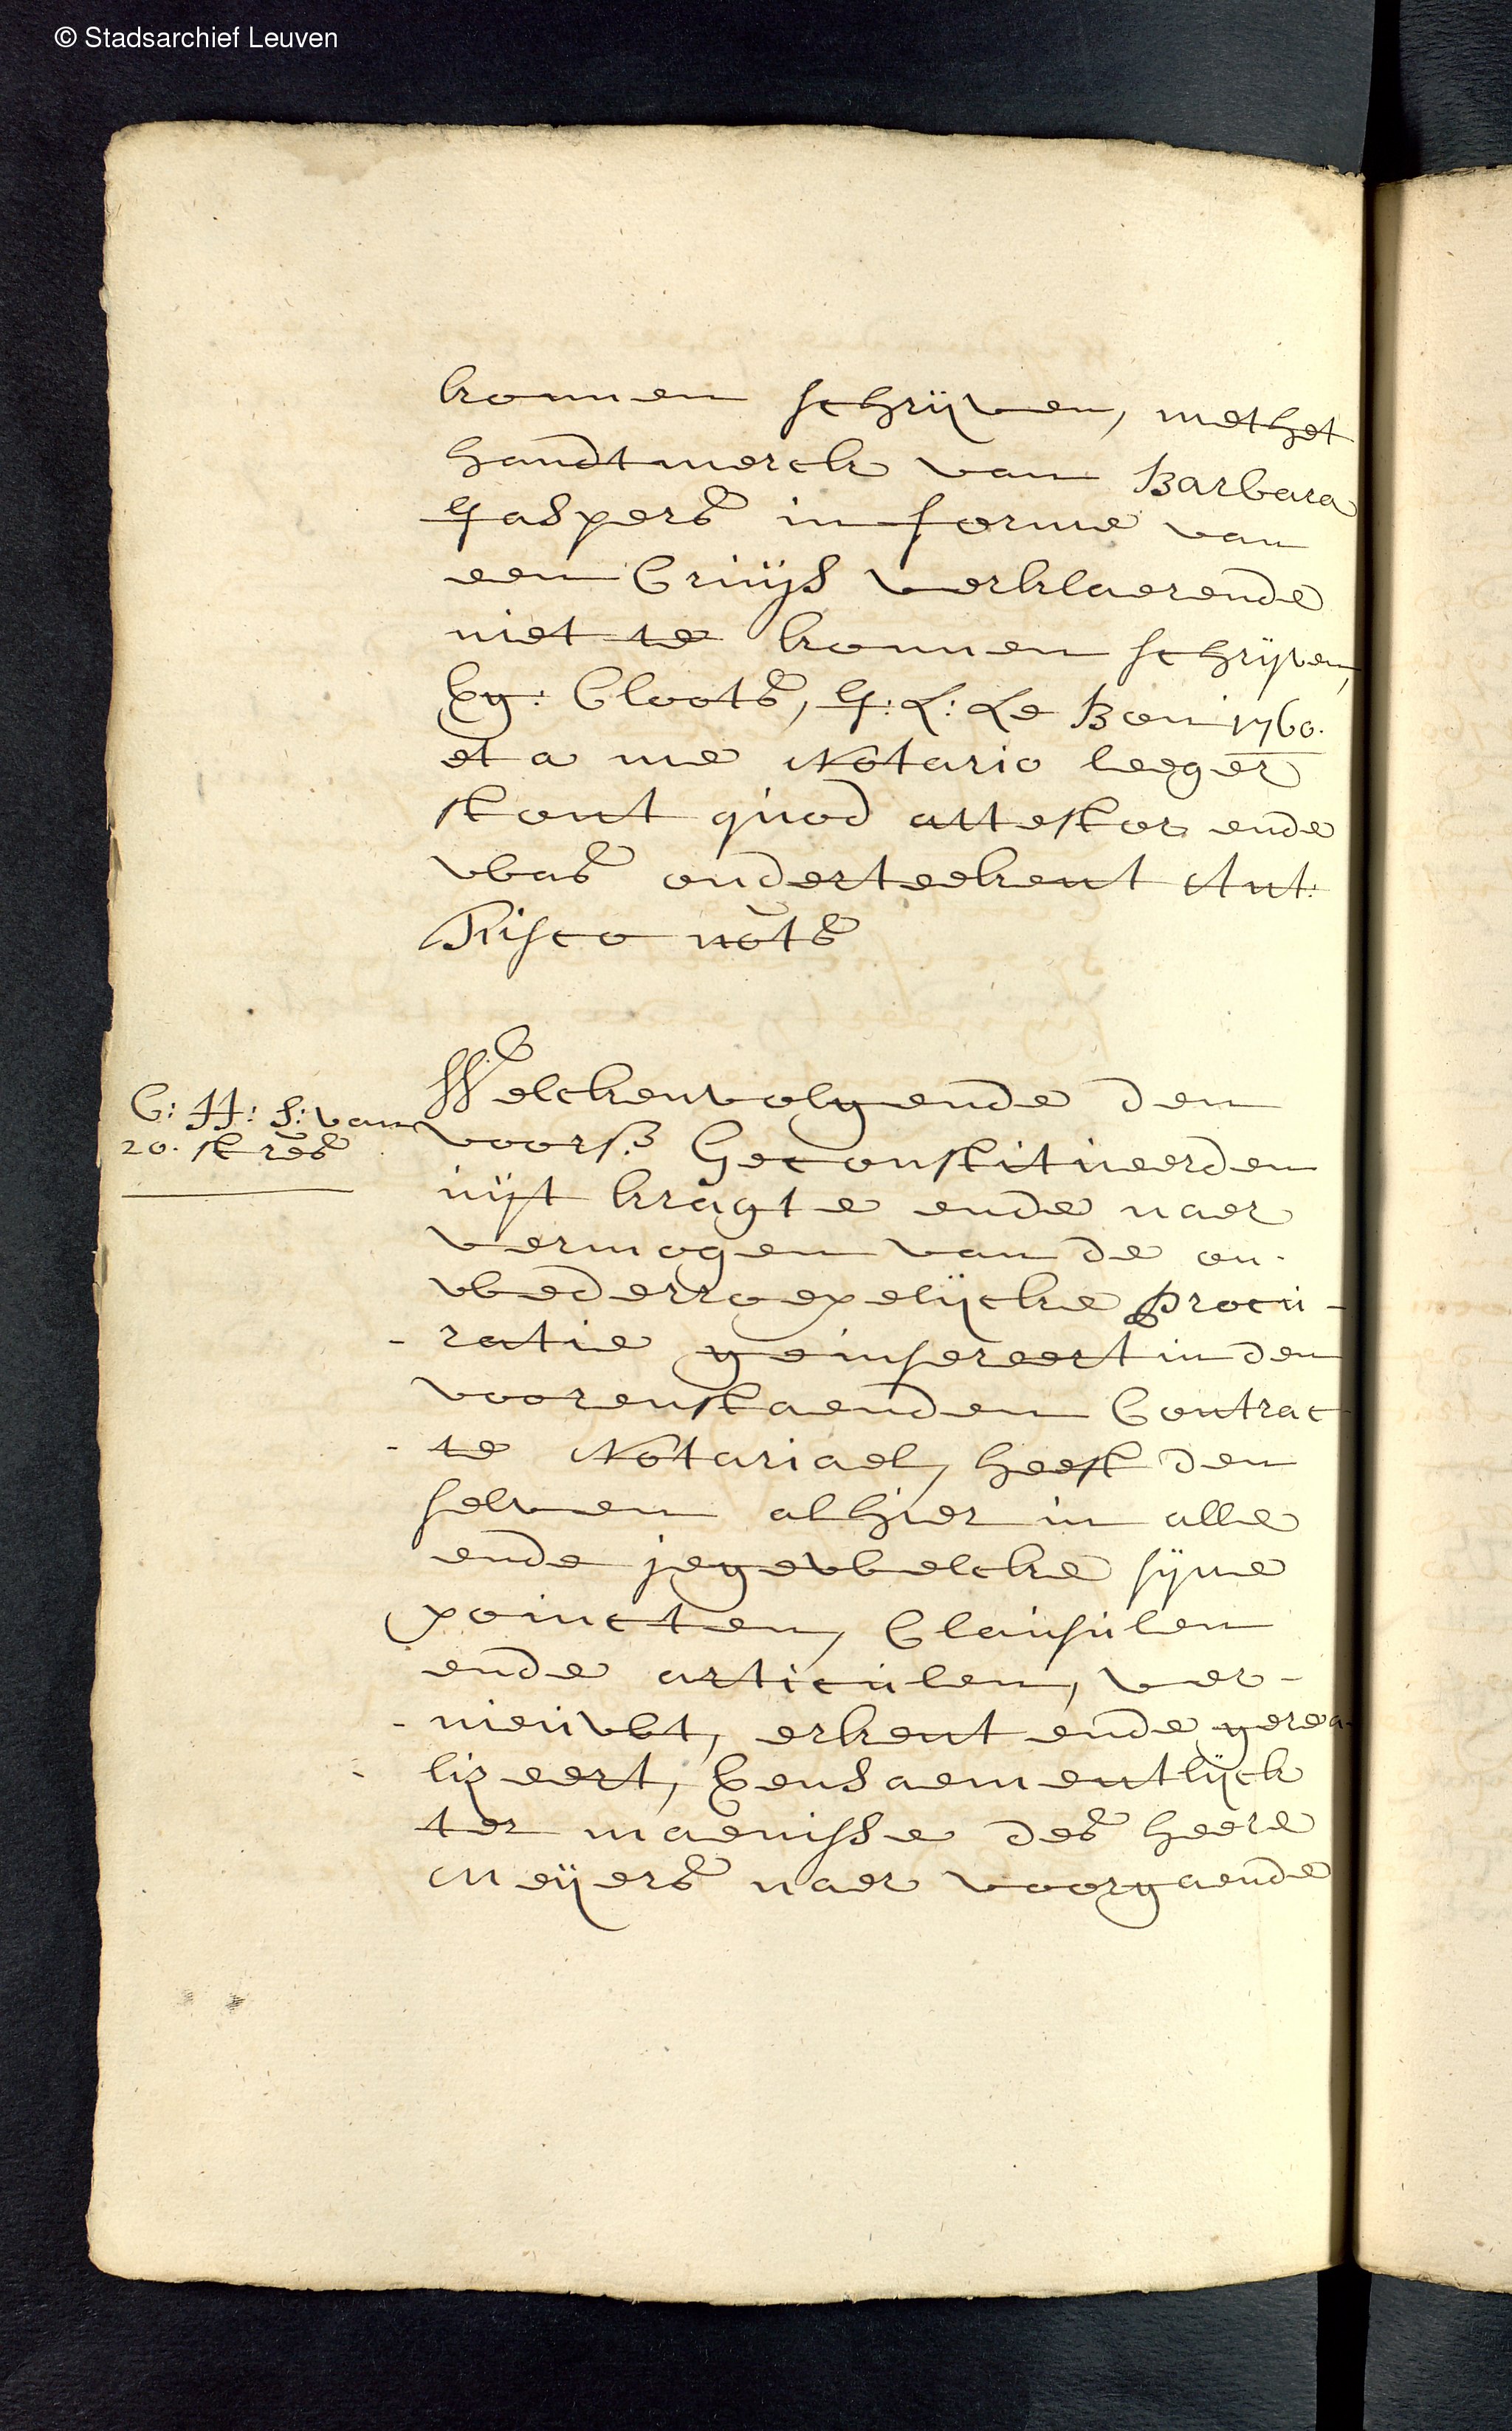 © Stadsarchief Leuven
konnen schrijven, met het
handtmerck van Barbara
Jaspers in forme van
een Cruijs verklaerende
niet te konnen schrijven,
Eg: Cloots, J: L: Le Bon 1760.
et a me Notario leeger
stont quod attestor ende
was onderteekent Ant:
Trisco nots
Welckenvolgende den
voors. Geconstitueerden
uijt kragte ende naer
vermogen van de on-
wederroepelijcke procu-
-ratie geinsereert in den
voorenstaenden Contrac
-te Notariael, heeft den
selven alhier in alle
ende jegewelcke sijne
poincten, Clausulen
ende articulen, ver-
-nieuwt, erkent ende gerea-
-lizeert, Eensaementlijck
ter maenisse des heere
Meijers naer voorgaende
C: H: S: van
20. st res